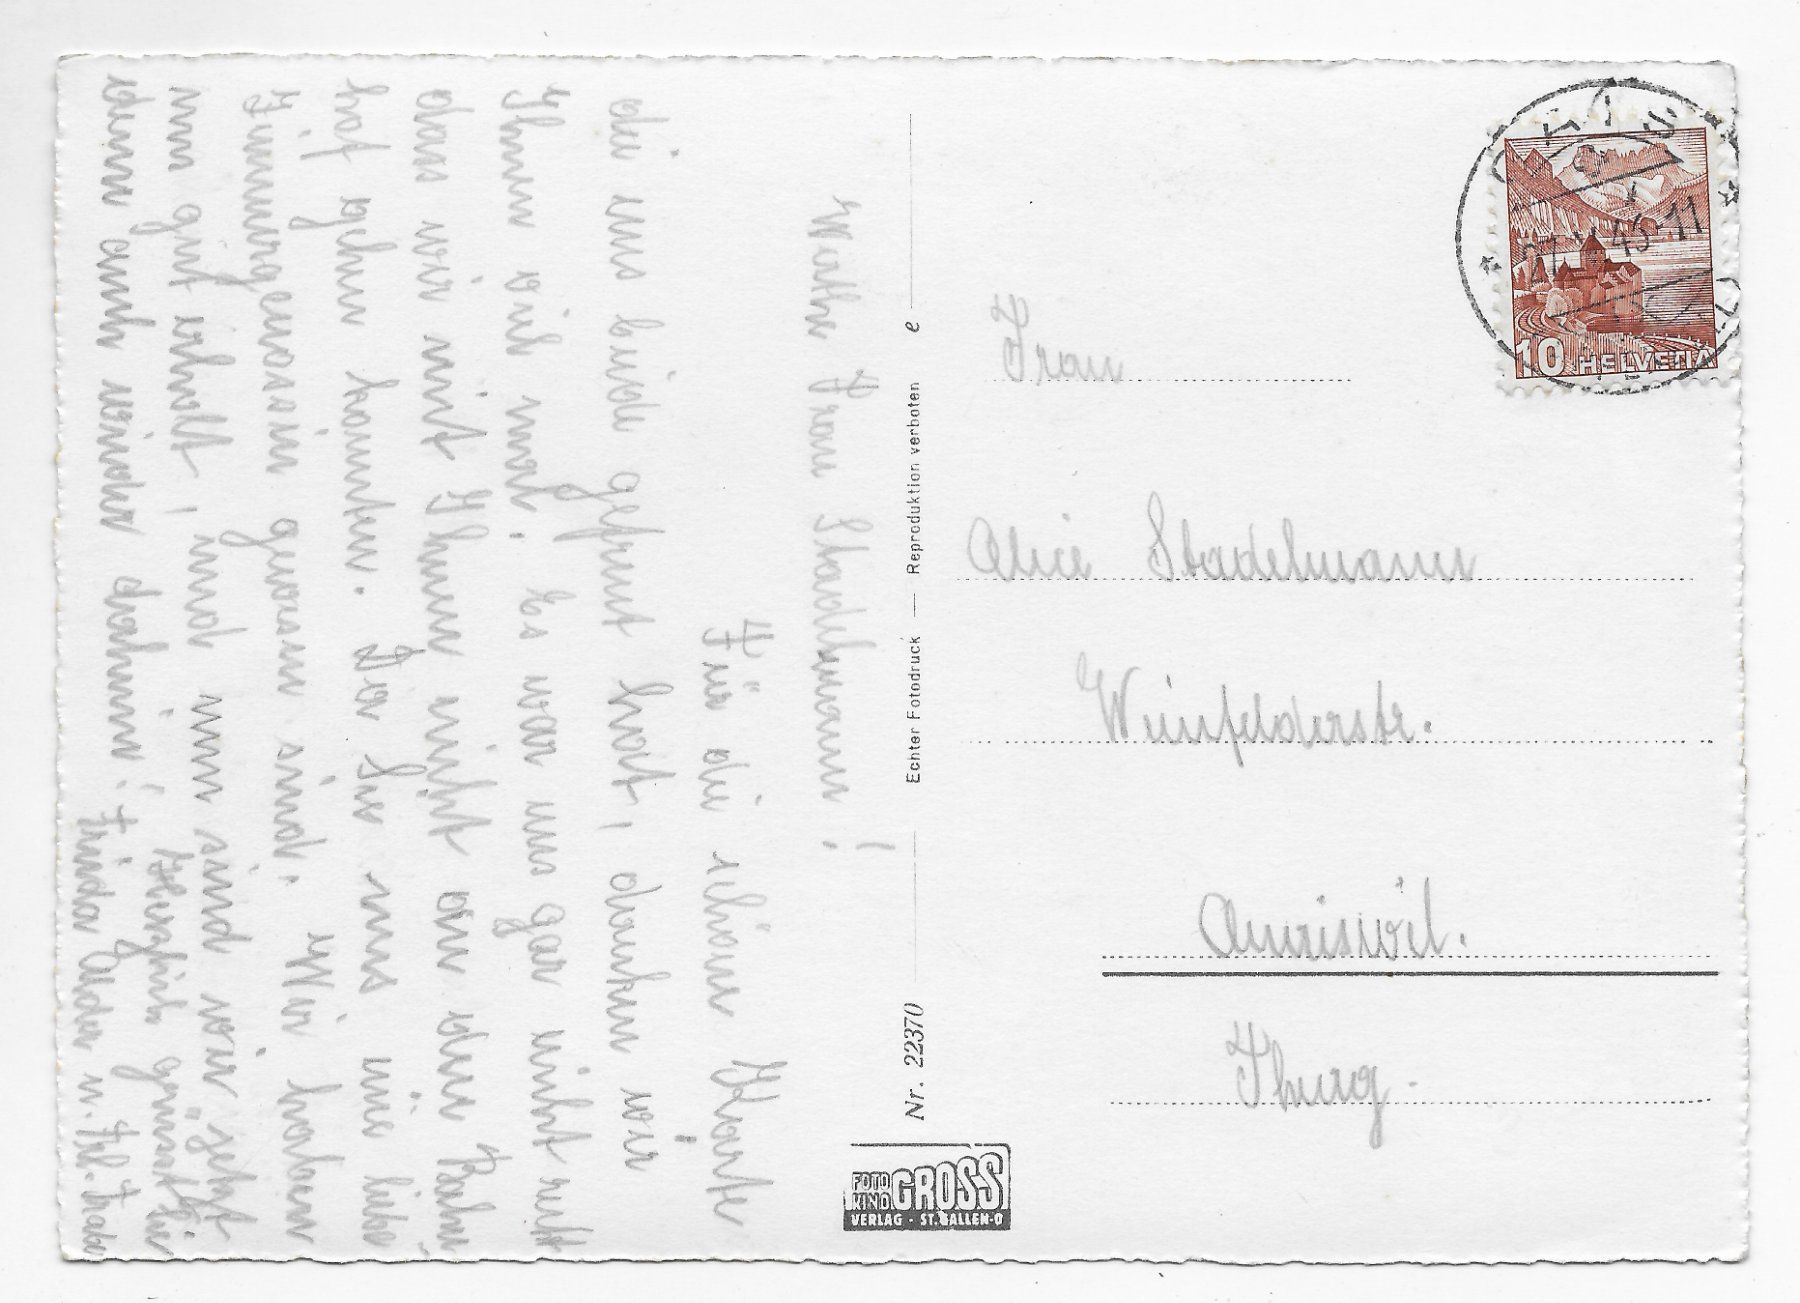 Werthe Frau Stadelmann!
Für die schöne Karte
die uns beide gefreut hat, danken wir
Ihnen viel mal. Es war uns gar nicht recht
dass wir mit Ihnen nicht an die Bahn
hof gehen konnten. Da Sie uns eine liebe
Zimmergenossin gewesen sind. Wir haben
nun gut erholt, und nun sind wir jetzt
denn auch wieder daheim!
Herzlich grüsst Sie
Frida Alder u. Frl.
Echter Fotodruck — Reproduktion verboten e
Nr. 22370
FOTO KINO GROSS
VERLAG · ST. GALLEN-O
10 HELVETIA
27. 45-11
Frau
Alice Stadelmann
Weinfelderstr.
Amriswil.
Thurg.